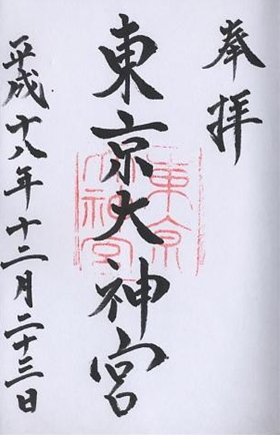 奉拝
東京大神宮
東京大神宮
平成十八年十二月二十三日